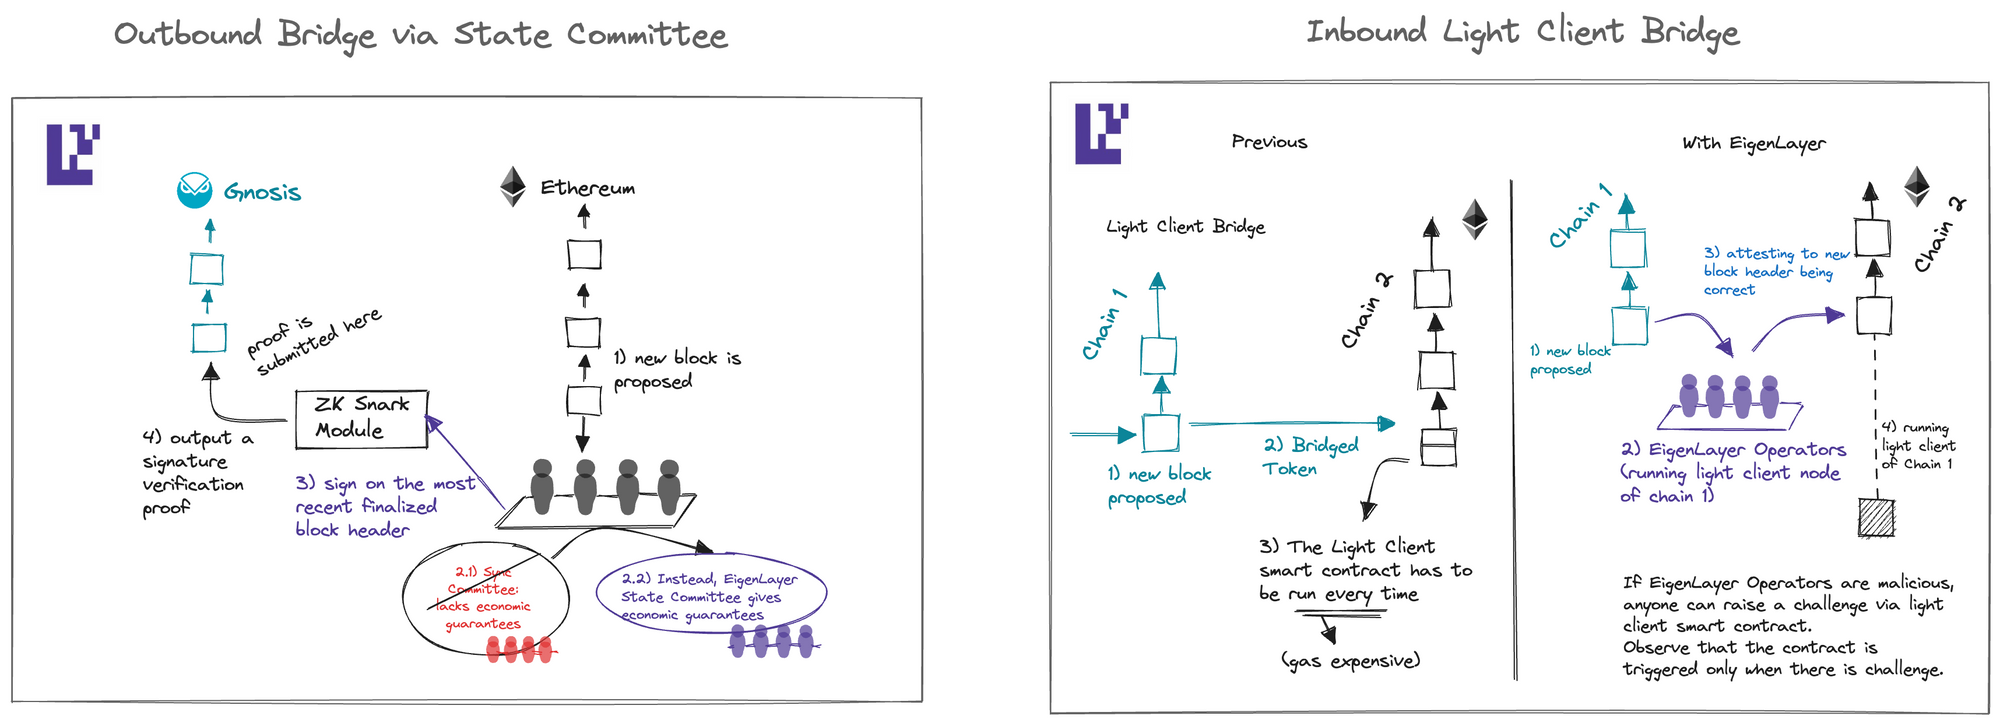 Outbound Bridge via State Committee
Gnosis
Ethereum
proof is
submitted here
1) new block is
proposed
ZK Snark
Module
4) output a
signature
verification
proof
3) sign on the most
recent finalized
block header
2.1) Sync
Committee:
lacks economic
guarantees
2.2) Instead, EigenLayer
State Committee gives
economic guarantees
Inbound Light Client Bridge
Previous
Light Client Bridge
Chain 1
Chain 2
1) new block
proposed
2) Bridged
Token
3) The Light Client
smart contract has to
be run every time
(gas expensive)
With EigenLayer
Chain 1
Chain 2
3) attesting to new
block header being
correct
1) new block
proposed
2) EigenLayer Operators
(running light client node
of chain 1)
4) running
light client
of Chain 1
If EigenLayer Operators are malicious,
anyone can raise a challenge via light
client smart contract.
Observe that the contract is
triggered only when there is challenge.